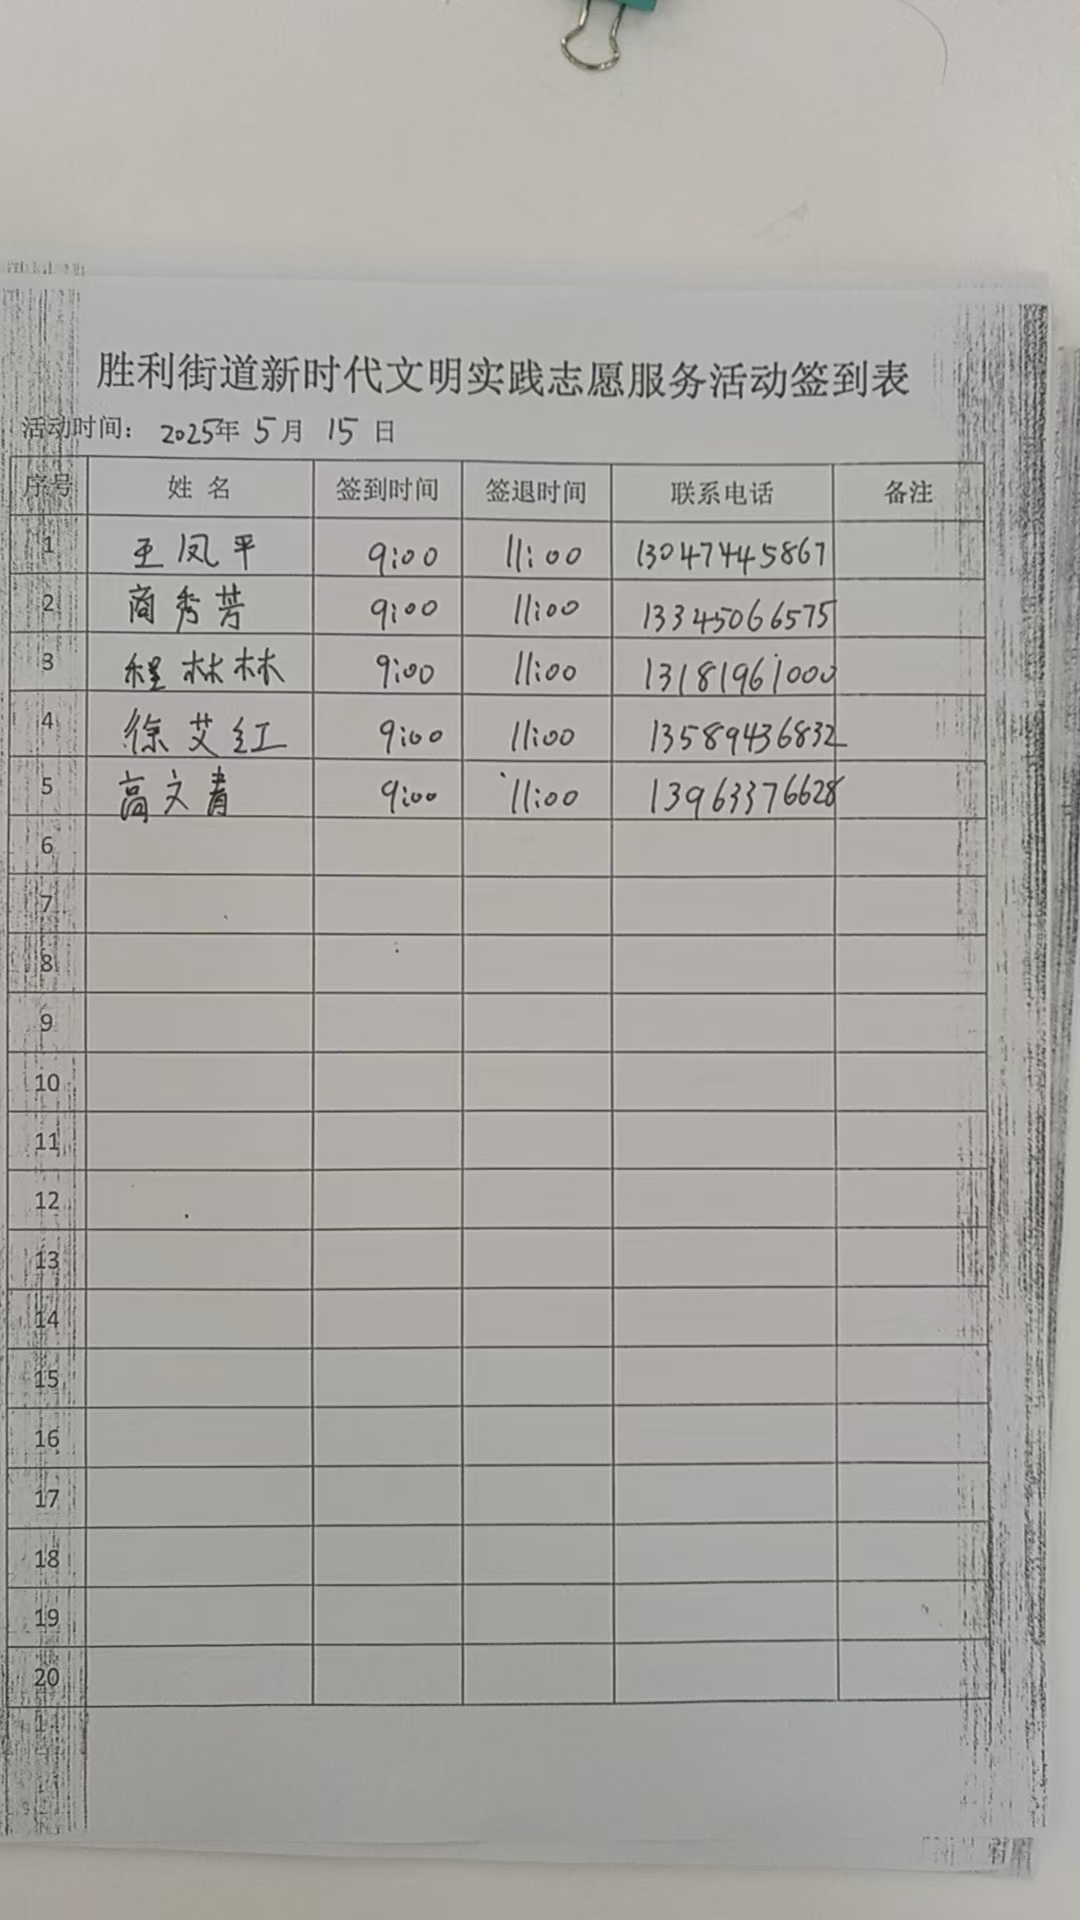 胜利街道新时代文明实践志愿服务活动签到表
活动时间： 2025年 5月 15日
序号 姓 名 签到时间 签退时间 联系电话 备注
1 王凤平 9:00 11:00 13047445867
2 商秀芳 9:00 11:00 13345066575
3 程林林 9:00 11:00 13181961000
4 徐艾红 9:00 11:00 13589436832
5 高文青 9:00 11:00 13963376628
6
7
8
9
10
11
12
13
14
15
16
17
18
19
20